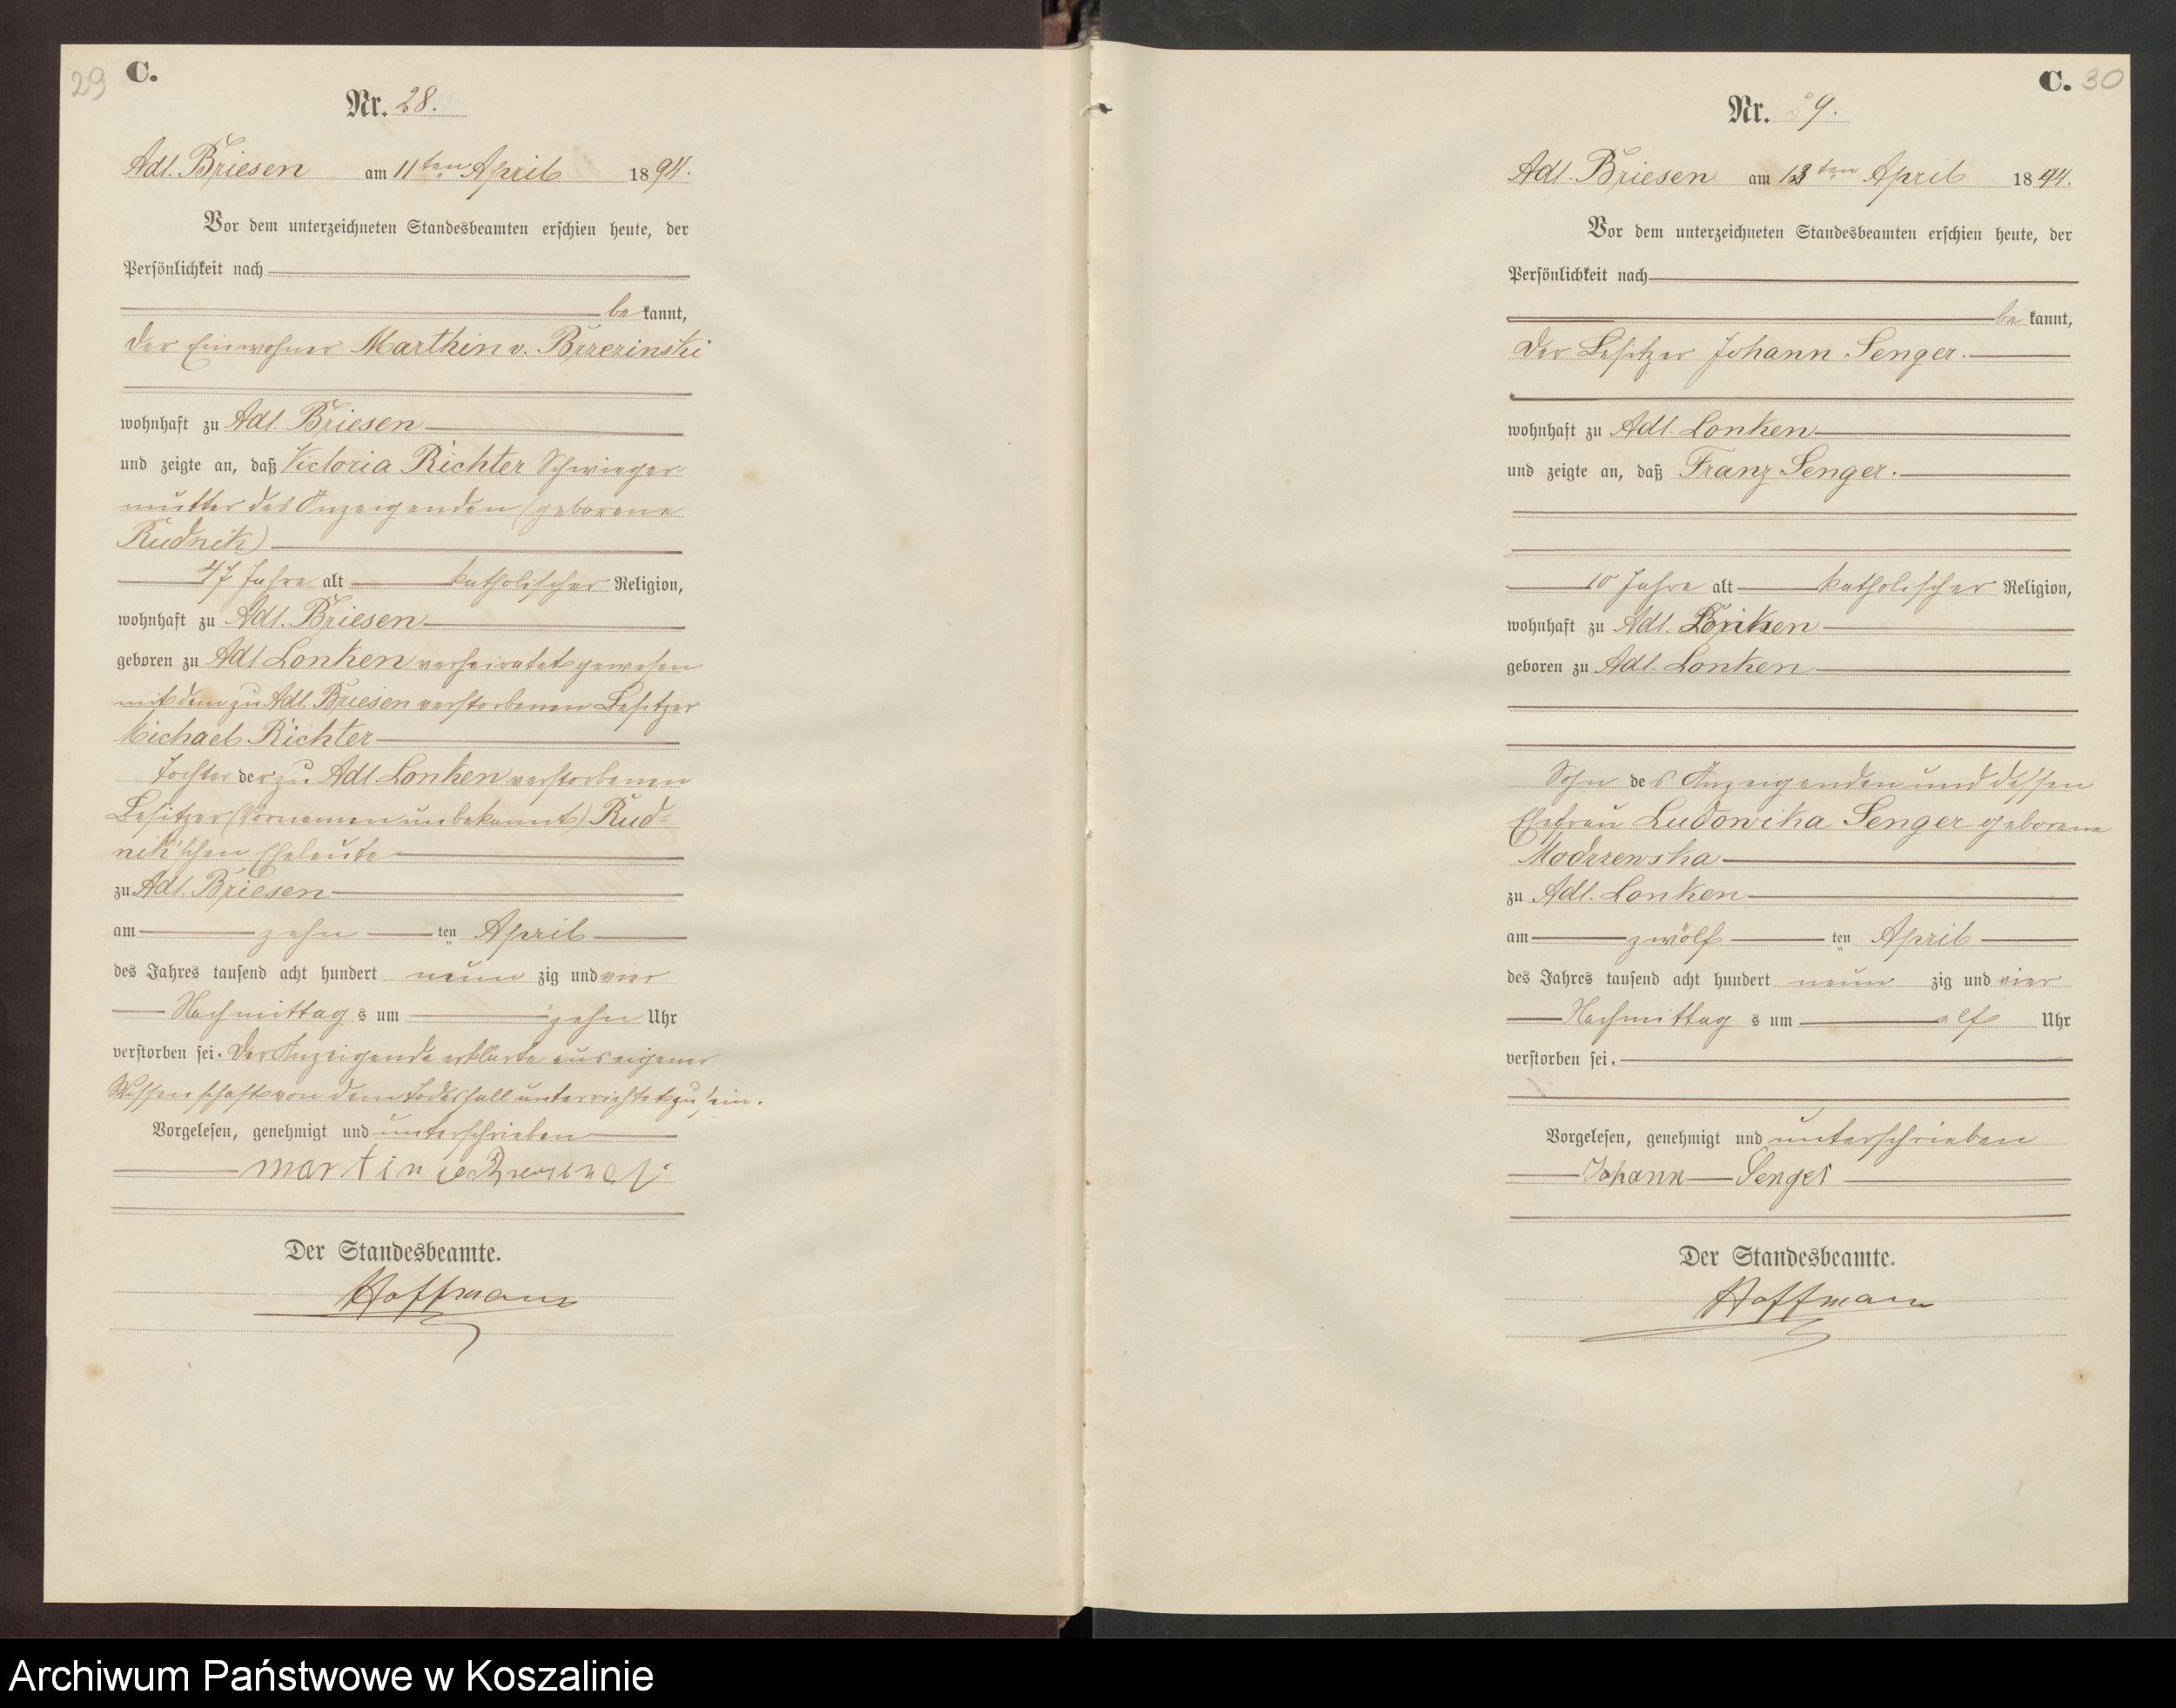 29
C.
Nr. 28.
Adl. Briesen am 11ten April 1894.
Vor dem unterzeichneten Standesbeamten erschien heute, der
Persönlichkeit nach
be kannt,
der Einwohner Marthin v. Brzezinski
wohnhaft zu Adl. Briesen
und zeigte an, daß Victoria Richter Schwieger-
mutter des Anzeigenden (geborene
Rudnik)
47 Jahre alt katholischer Religion,
wohnhaft zu Adl. Briesen
geboren zu Adl Lonken verheiratet gewesen
mit dem zu Adl. Briesen verstorbenen Besitzer
Michael Richter
Tochter der zu Adl Lonken verstorbenen
Besitzer (Vornamen unbekannt) Rud=
nik'schen Eheleute
zu Adl. Briesen
am zehn ten April
des Jahres tausend acht hundert neun zig und vier
Nachmittag s um zehn Uhr
verstorben sei. Der Anzeigende erklärte aus eigener
Wissenschaft von dem Todesfall unterrichtet zu sein.
Vorgelesen, genehmigt und unterschrieben
martin
Der Standesbeamte.
Hoffmann
C. 30
Nr. 29.
Adl. Briesen am 13ten April 1894.
Vor dem unterzeichneten Standesbeamten erschien heute, der
Persönlichkeit nach
be kannt,
der Besitzer Johann Senger.
wohnhaft zu Adl. Lonken
und zeigte an, daß Franz Senger.
10 Jahre alt katholischer Religion,
wohnhaft zu Adl. Lonken
geboren zu Adl. Lonken
Sohn des Anzeigenden und dessen
Ehefrau Ludowika Senger geborene
Modrzewska
zu Adl. Lonken
am zwölf ten April
des Jahres tausend acht hundert neun zig und vier
Nachmittag s um elf Uhr
verstorben sei.
Vorgelesen, genehmigt und unterschrieben
Johann Senger
Der Standesbeamte.
Hoffmann
Archiwum Państwowe w Koszalinie